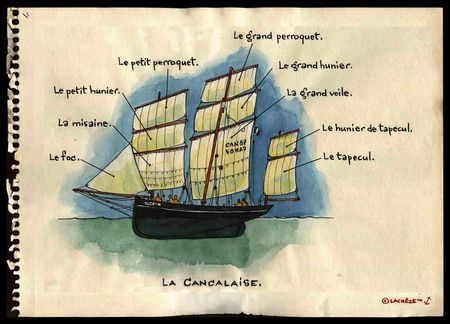 Le grand perroquet.
Le petit perroquet.
Le grand hunier.
Le petit hunier.
La grand voile.
La misaine.
Le hunier de tapecul.
Le foc.
Le tapecul.
LA CANCALAISE.
©LACHÈZE